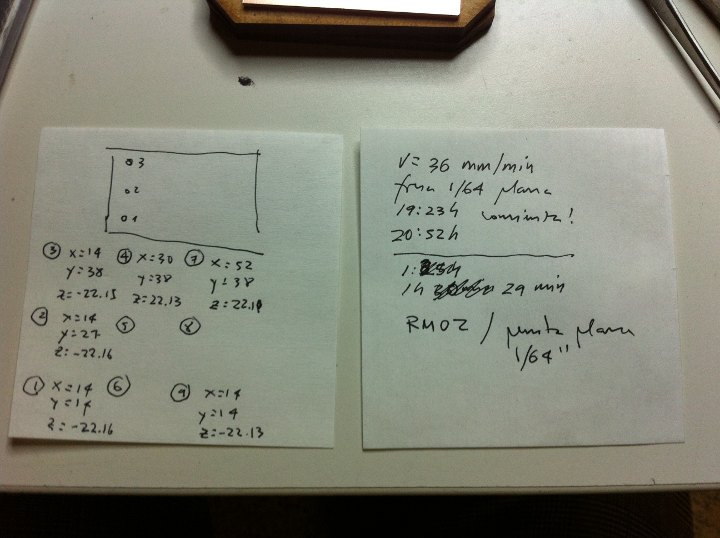 o 3
o 2
o 1
③ x=14 ④ x=30 ⑦ x=52
y=38 y=38 y=38
z=-22.15 z=22.13 z=22.11
② x=14 ⑤ ⑧
y=27
z=-22.16
① x=14 ⑥ ⑨ x=14
y=14 y=14
z=-22.16 z=-22.13
V=36 mm/min
fresa 1/64 plana
19:23h
20:52h
1h 29 min
RMOZ / punta plana
1/64"